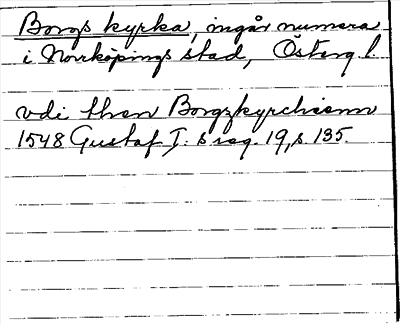 Borgs kyrka, ingår numera
i Norrköpings stad, Östergl.
vdi then Borgzkyrchionn
1548 Gustaf I:s reg. 19, s. 135.